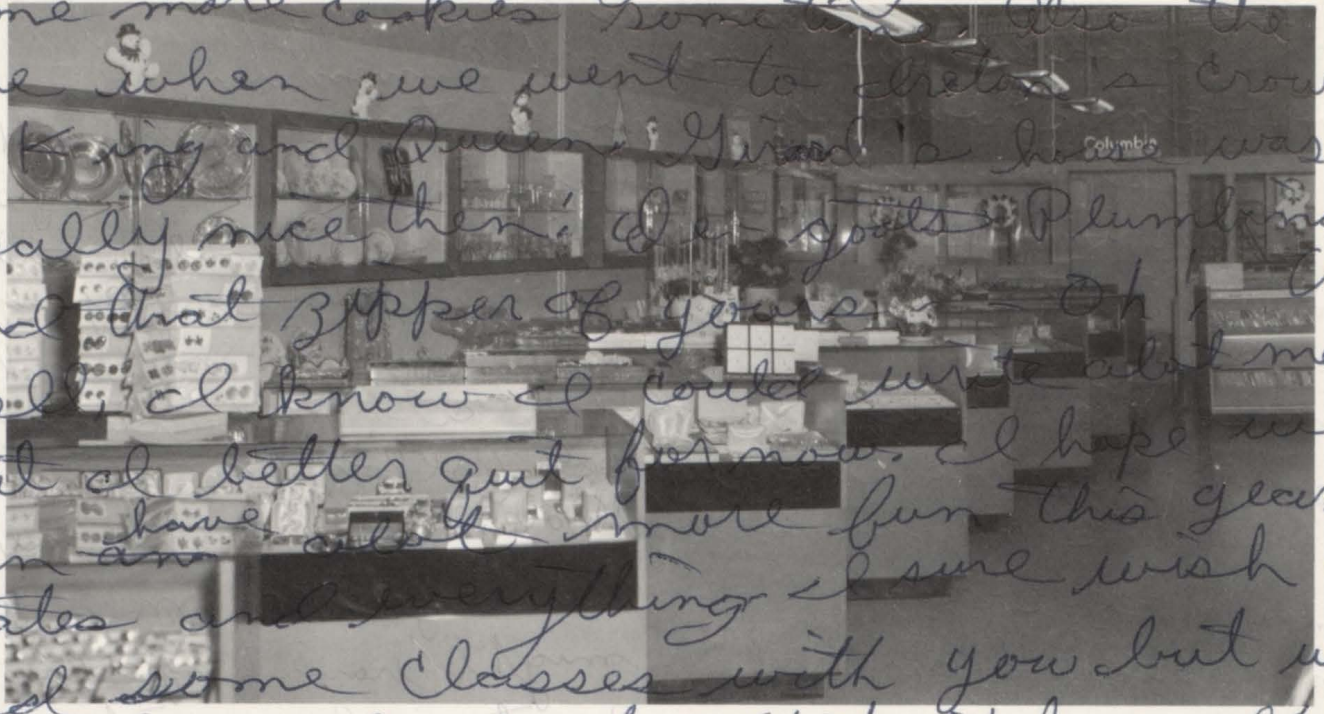 me more cookies sometime. Also the
e when we went to Breton's Crow
King and Queen. Girard's house was
ally nice then! goats Plumbing
d that zipper of yours - Oh!
ell, I know I could write alot mo
t I better quit for now. I hope w
n an have alot more fun this year
ates and everything I sure wish
d some classes with you but w
Columbia